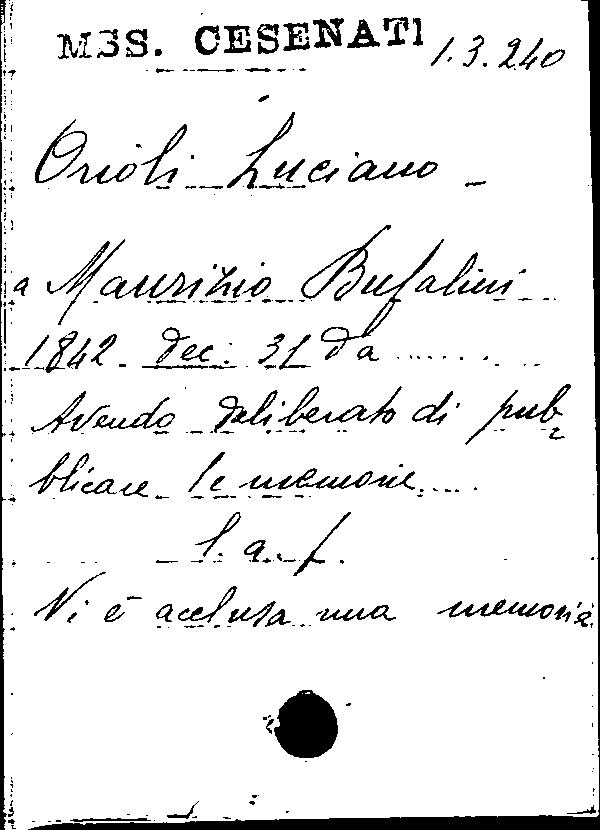 MSS. CESENATI 1.3.240
Orioli Luciano -
a Maurizio Bufalini
1842 - dec. 31 da .......
Avendo deliberato di pub-
blicare le memorie.....
l. a. f.
Vi è acclusa una memoria